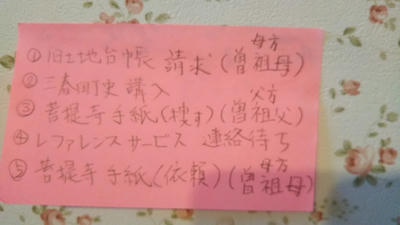 母方
①旧土地台帳 請求(曽祖母)
②三春町史 講入
父方
③菩提寺手紙(捜す)(曽祖父)
④レファレンスサービス 連絡待ち
母方
⑤菩提寺手紙(依頼)(曽祖母)